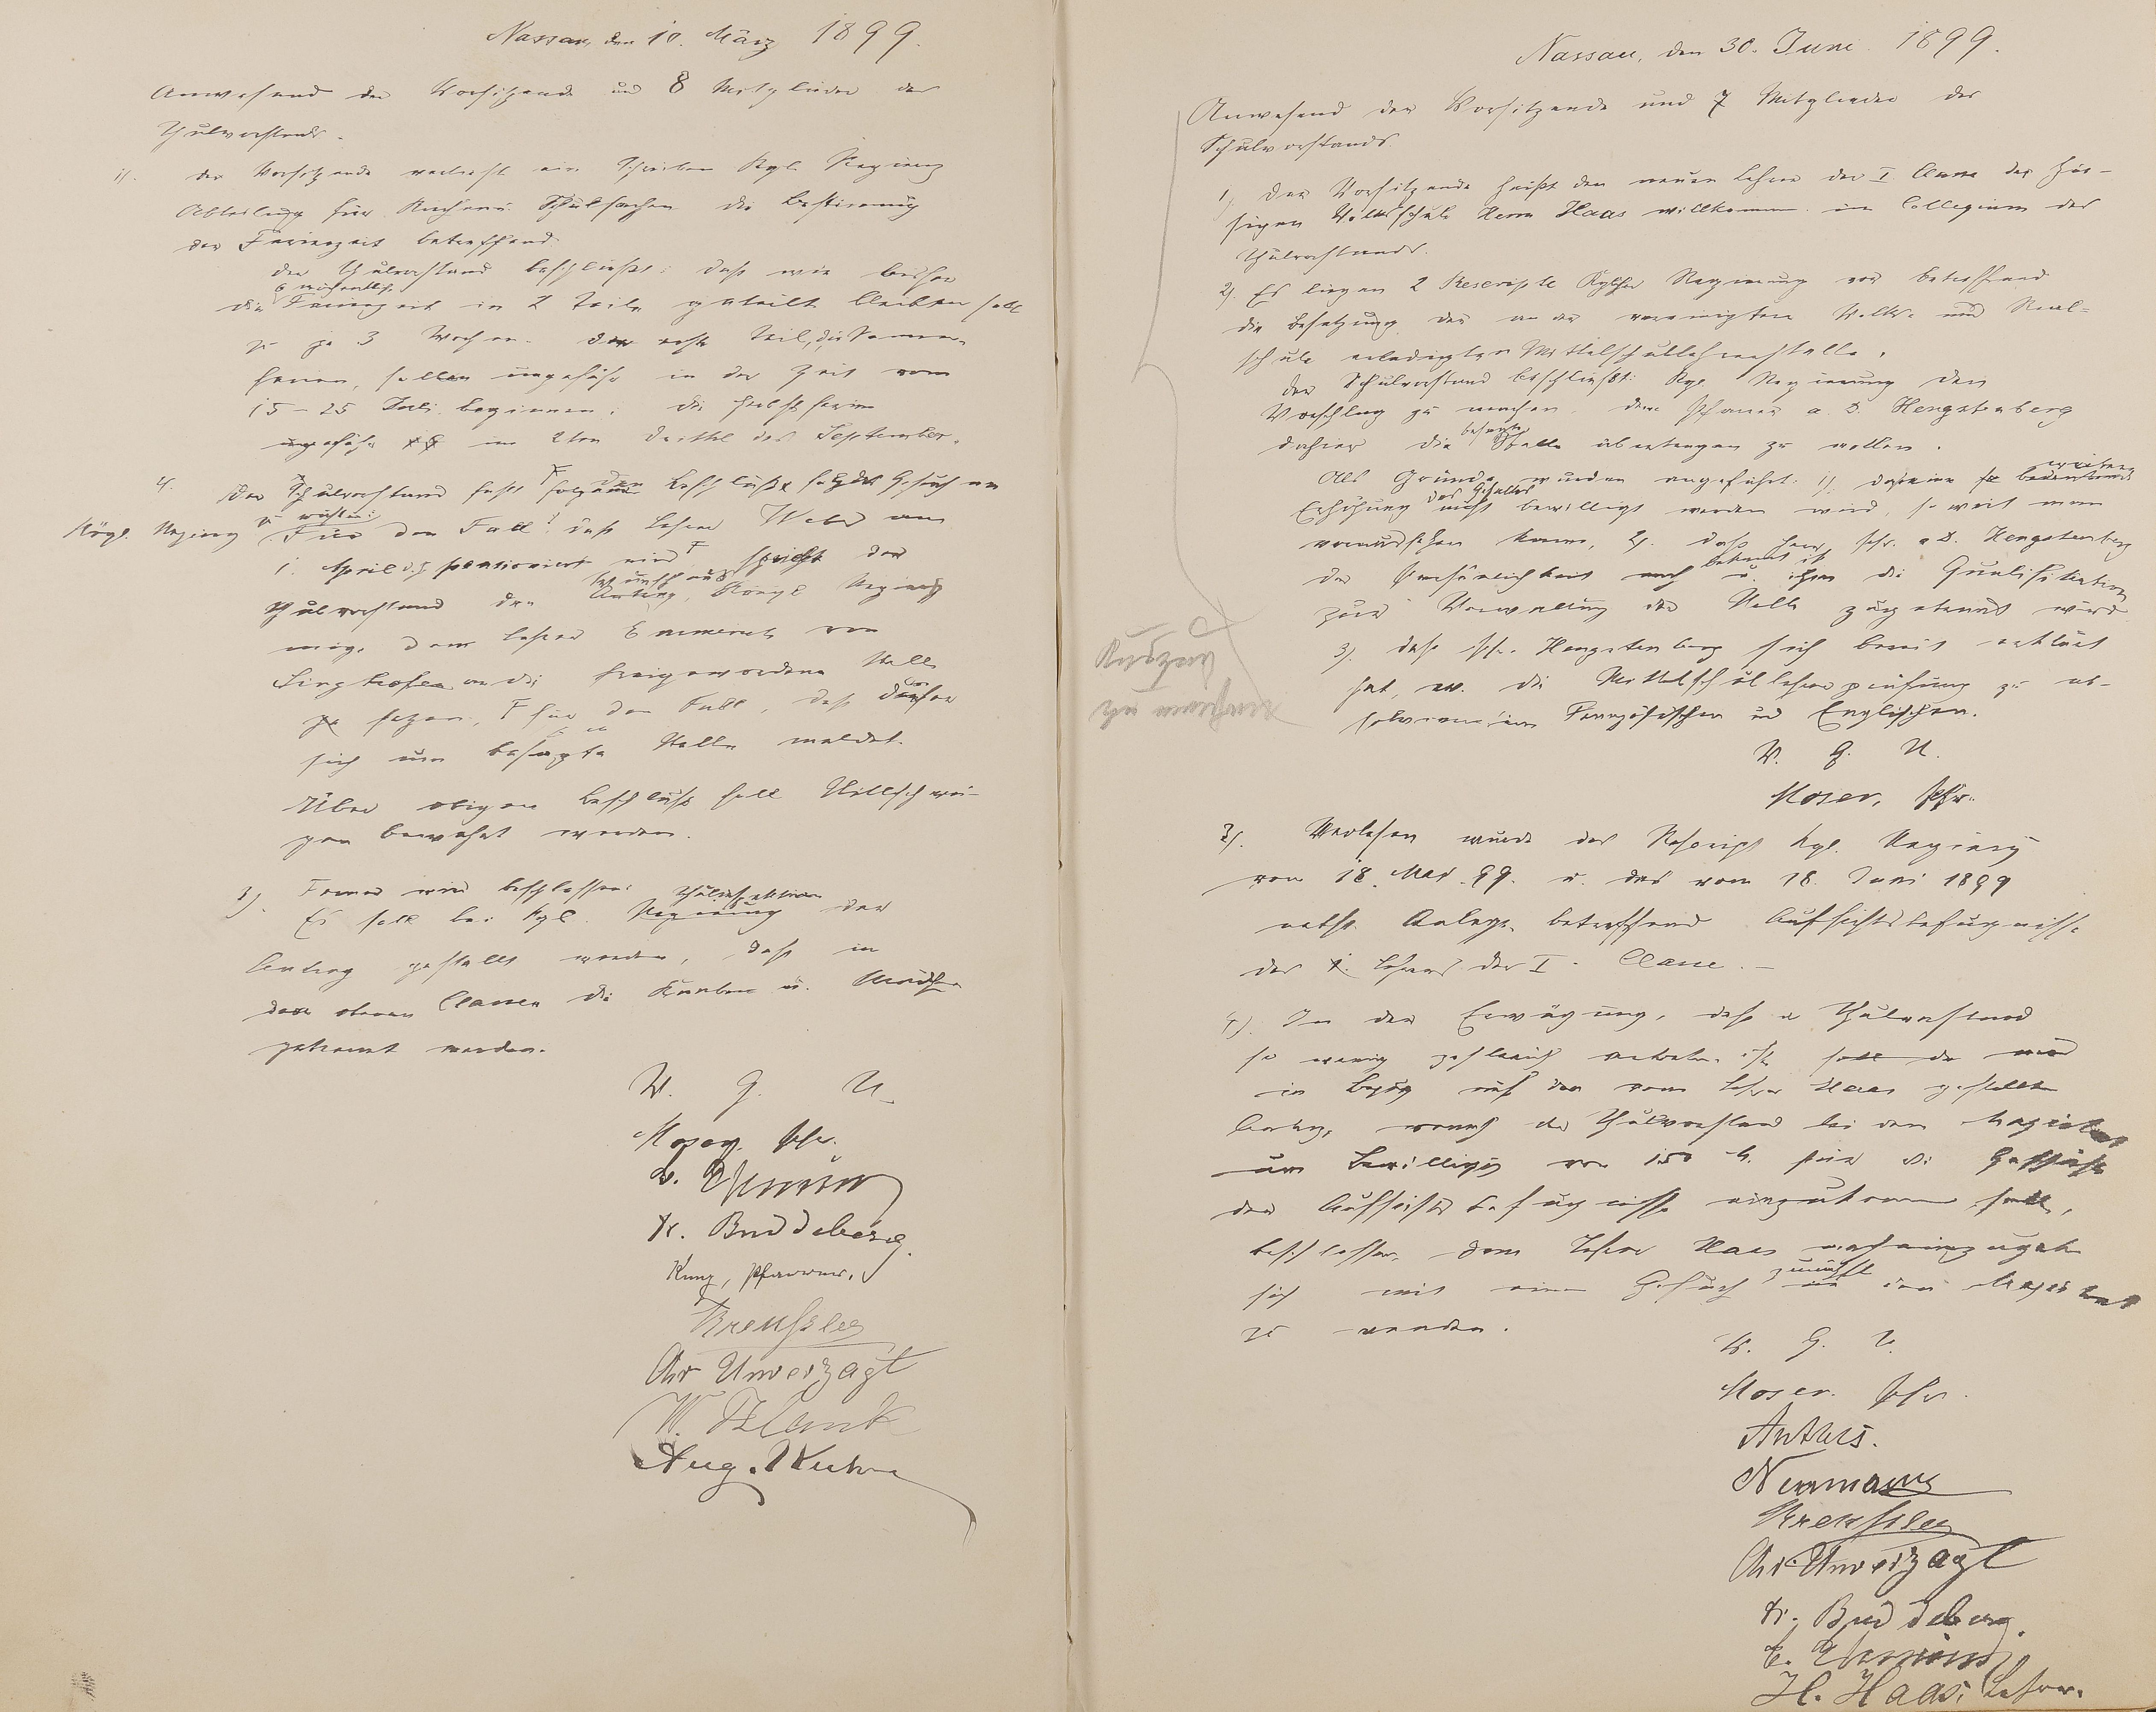 Nassau, den 10. März 1899.
Anwesend der Vorsitzende und 8 Mitglieder des
Schulvorstands.
1). Der Vorsitzende verliest ein Schreiben Kgl. Regierung
Abteilung für Kirchen u. Schulsachen die Bestimmung
der Ferienzeit betreffend.
Der Schulvorstand beschließt: daß wie bisher
die 6 wöchentliche Ferienzeit in 2 Teile geteilt bleiben soll
zu je 3 Wochen. Der erste Teil, die Sommer-
ferien, sollen ungefähr in der Zeit vom
15-25 Juli beginnen; die Herbstferien
ungefähr im 2ten Drittel des September.
Der Schulvorstand faßt folgenden Beschluß Gesuch an
Königl. Regierung zu richten:
Für den Fall, daß Lehrer Weber am
1. April d. J. pensioniert wird spricht der
Schulvorstand den Wunsch aus, Königl. Regierung
möge dem Lehrer Emmerich von
Singhofen an die freigewordene Stelle
zu setzen, für den Fall, daß
sich um besagte Stelle meldet.
Über obigen Beschluß soll Stillschwei-
gen bewahrt werden.
3). Ferner wird beschlossen:
Es soll bei Kgl. Regierung Schulinspektion der
Antrag gestellt werden, daß in
den oberen Classen die Knaben u. Mädchen
getrennt werden.
V. G. U.
Moser, Pfr.
Fr. Buddeberg.
Kunz, Pfarrer.
Kreußler
Chr Unverzagt
W. Blank
Aug. Kuhn
Nassau, den 30. Juni 1899.
Anwesend der Vorsitzende und 7 Mitglieder des
Schulvorstands.
1). Der Vorsitzende heißt den neuen Lehrer der I Classe der hie-
sigen Volksschule Herrn Haas willkommen im Collegium des
Schulvorstands.
2). Es liegen 2 Rescripte Kglher Regierung vor betreffend
die Besetzung der an der vereinigten Volks- und Real-
schule erledigten Mittelschullehrerstelle.
Der Schulvorstand beschließt: Kgl. Regierung den
Vorschlag zu machen, dem Pfarrer a. D. Hengstenberg
dahier die besagte Stelle übertragen zu wollen.
Als Gründe wurden angeführt: 1). daß eine weitere
Erhöhung des Gehaltes nicht bewilligt werden wird, so weit man
voraussehen kann, 2). daß Herr Pfr. a D. Hengstenberg
der Persönlichkeit nach bekannt ist u. ihm die Qualifikation
zur Verwaltung der Stelle zuerkannt wird
3). daß Pfr. Hengstenberg sich bereit erklärt
hat, ev. die Mittelschullehrerprüfung zu ab-
solvieren im Französischen und Englischen.
V. G. U.
Moser, Pfr.
Auszug
zu machen
3). Verlesen wurde das Rescript Kgl. Regierung
vom 18. Mai 99. u. das vom 18. Juni 1899
nebst Anlage, betreffend Aufsichtsbefugnisse
des Lehrers der I. Classe. —
4). In der Erwägung, daß der Schulvorstand
so wenig zahlreich vertreten ist, soll da wird
in Bezug auf den vom Lehrer Haas gestellten
Antrag, wonach der Schulvorstand bei dem Magistrat
um Bewilligung von 150 M. für die
der Aufsichtsbefugnisse einzukommen soll,
beschlossen, dem Lehrer Haas
sich mit einem Gesuch zunächst an den Magistrat
zu wenden.
V. G. U.
Moser. Pfr.
Anthes.
Neumann
Kreußler
Chr. Unverzagt
Fr. Buddeberg.
H. Haas, Lehrer.